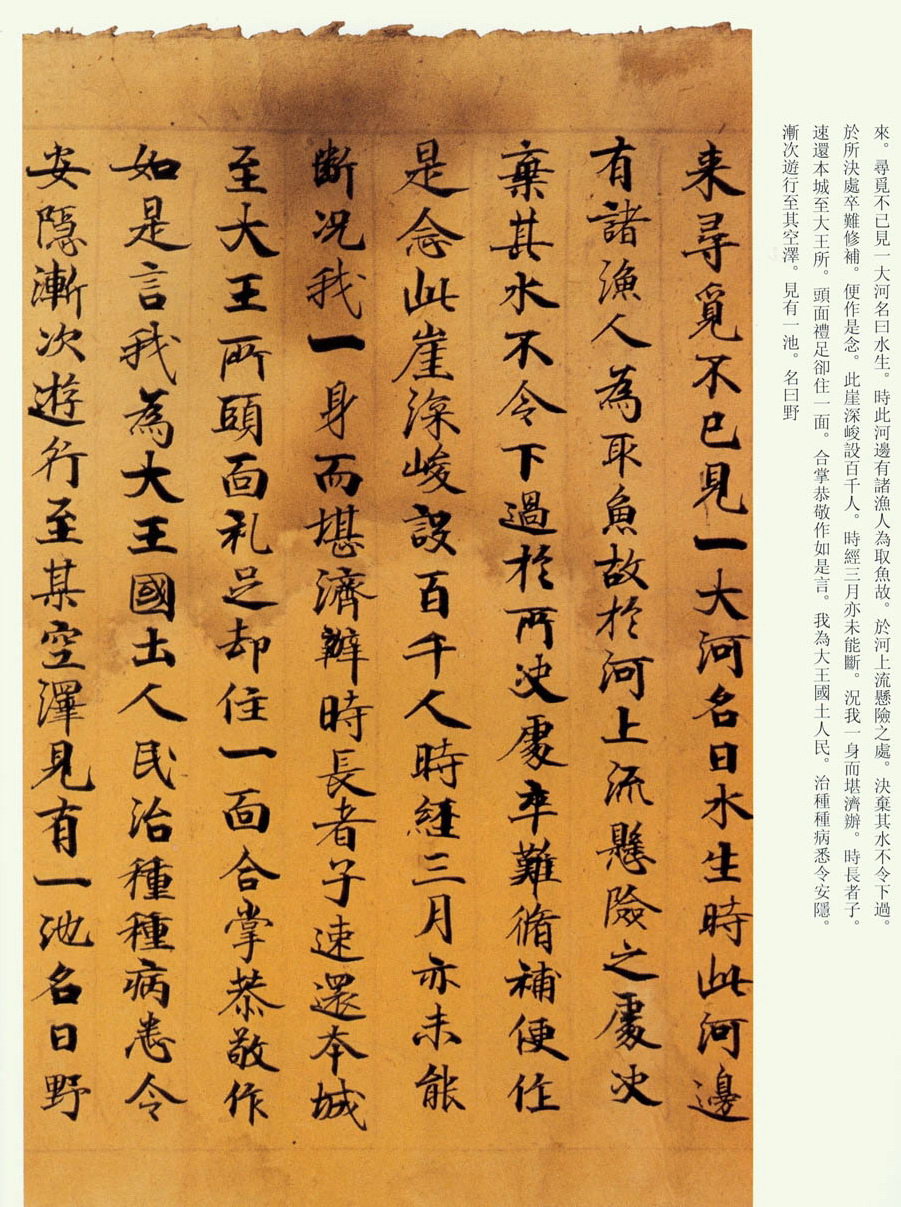 來。尋覓不已見一大河名曰水生。時此河邊有諸漁人為取魚故。於河上流懸險之處。決棄其水不令下過。
於所決處卒難修補。便作是念。此崖深峻設百千人。時經三月亦未能斷。況我一身而堪濟辦。時長者子。
速還本城至大王所。頭面禮足卻住一面。合掌恭敬作如是言。我為大王國土人民。治種種病悉令安隱。
漸次遊行至其空澤。見有一池。名曰野
来尋覓不已見一大河名曰水生時此河邊
有諸漁人為取魚故於河上流懸險之處决
棄其水不令下過於所决處卒難脩補便作
是念此崖深峻設百千人時經三月亦未能
断况我一身而堪濟辦時長者子速還本城
至大王所頭面礼足却住一面合掌恭敬作
如是言我為大王國土人民治種種病悉令
安隱漸次遊行至某空澤見有一池名曰野